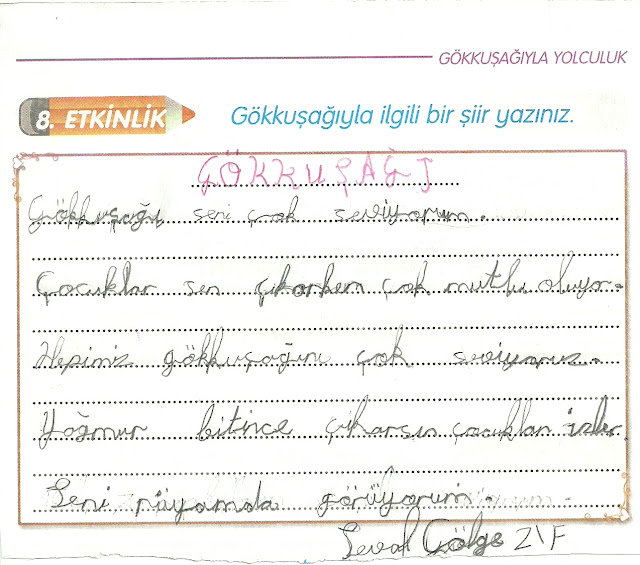 GÖKKUŞAĞIYLA YOLCULUK
8. ETKİNLİK Gökkuşağıyla ilgili bir şiir yazınız.
GÖKKUŞAĞI
Gökkuşağı seni çok seviyorum.
Çocuklar sen çıkarken çok mutlu oluyor.
Hepimiz gökkuşağını çok seviyoruz.
Yağmur bitince çıkarsın çocuklar izler.
Seni rüyamda görüyorum.
Seval Gölge 2\F